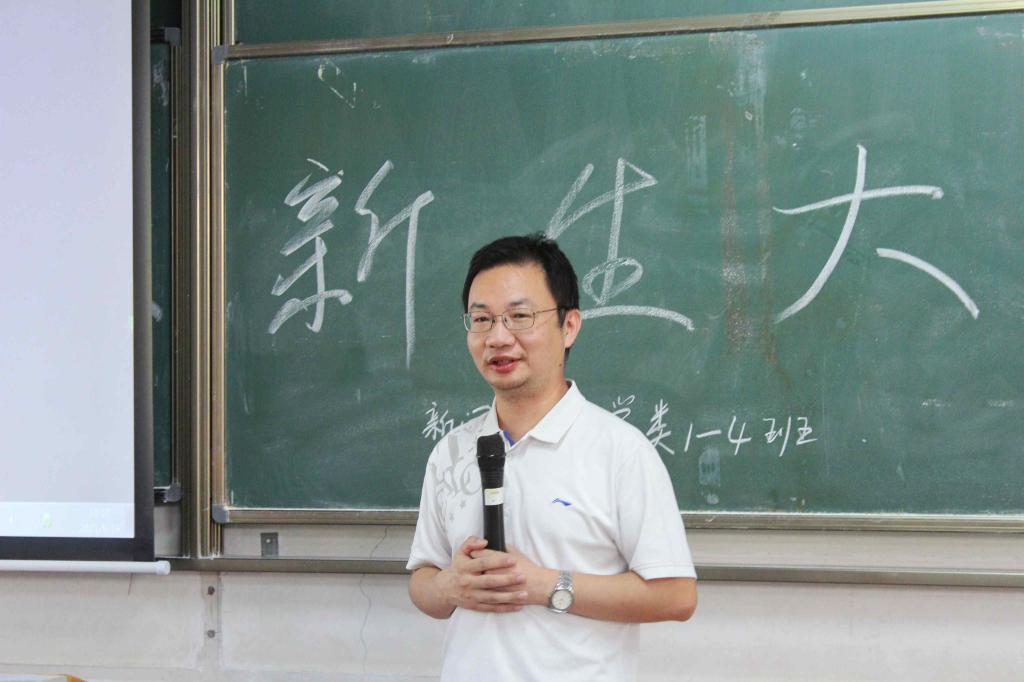 新生大
新闻 学类1-4班